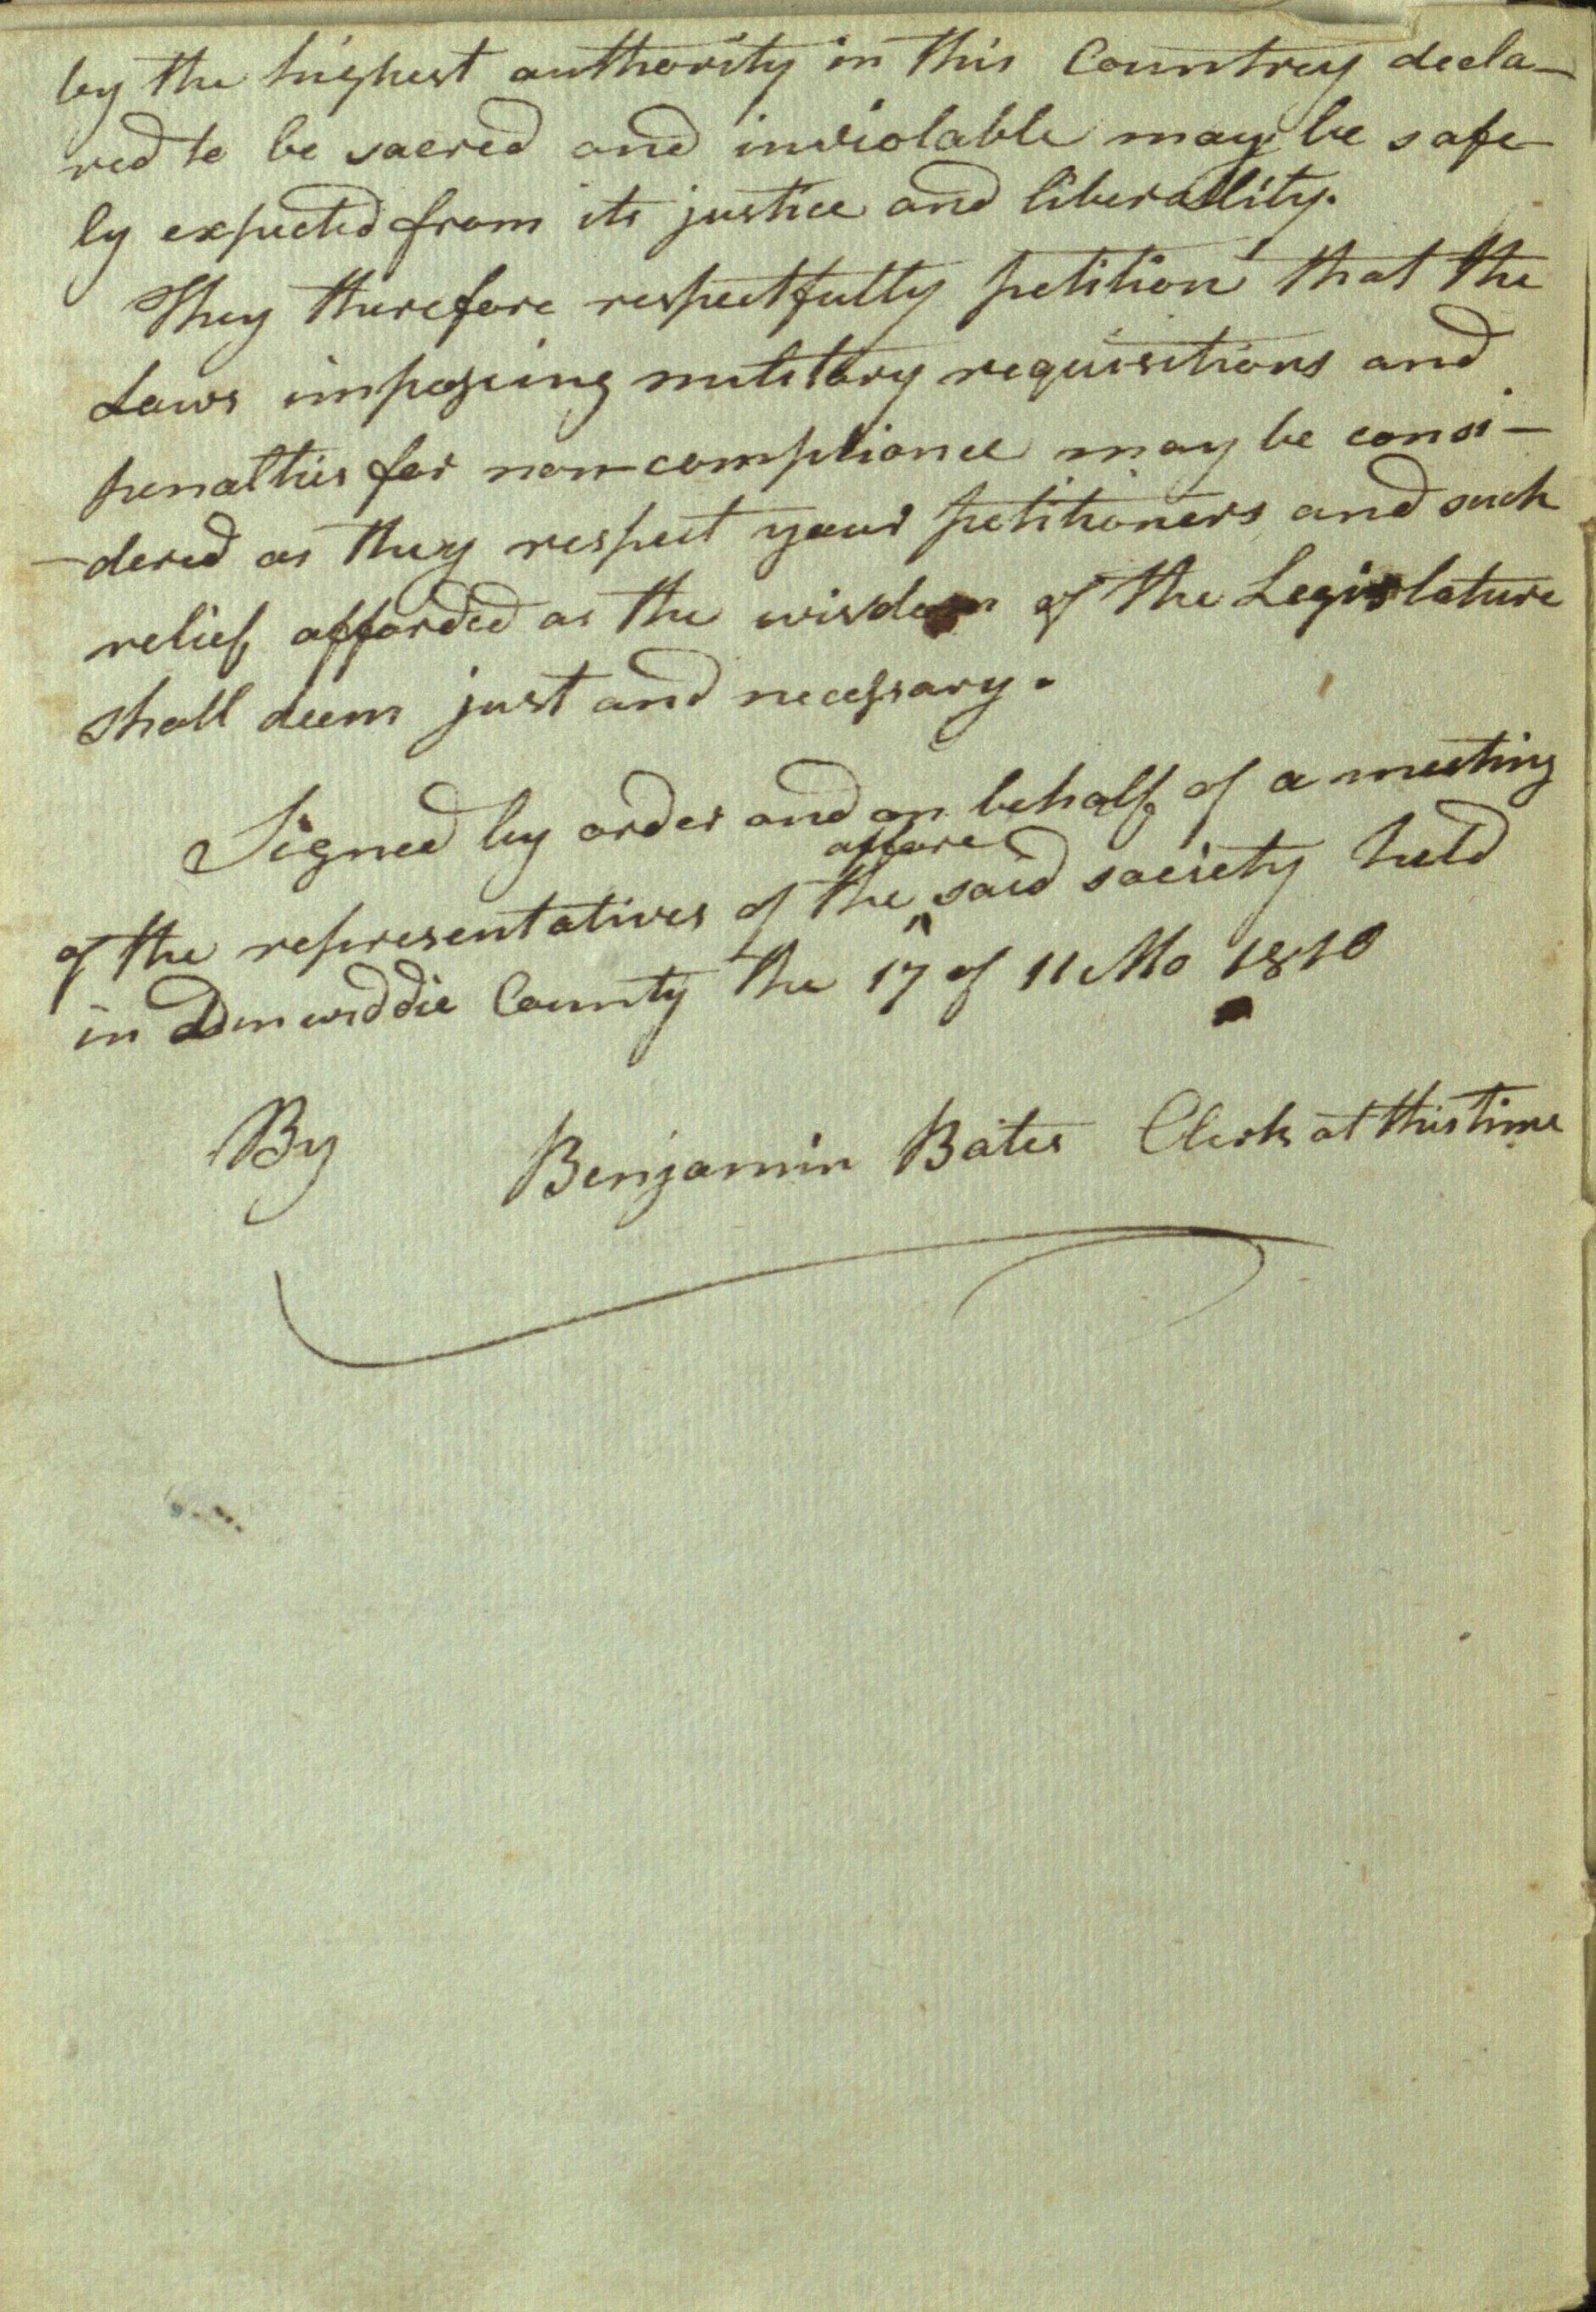 by the highest authority in this Countrey decla-
red to be sacred and inviolable may be safe-
ly expected from its justice and liberallity.
They therefore respectfully petition that the
Laws imposeing military requisitions and
penalties for non-compliance may be consi-
-dered as they respect your petitioners and such
relief afforded as the wisdom of the Legislature
shall deem just and necessary.
Signed by order and on behalf of a meeting
affore
of the representatives of the ^ said society held
in Dinwiddie County the 17 of 11 Mo 1810
By Benjamin Bates Clerk at this time